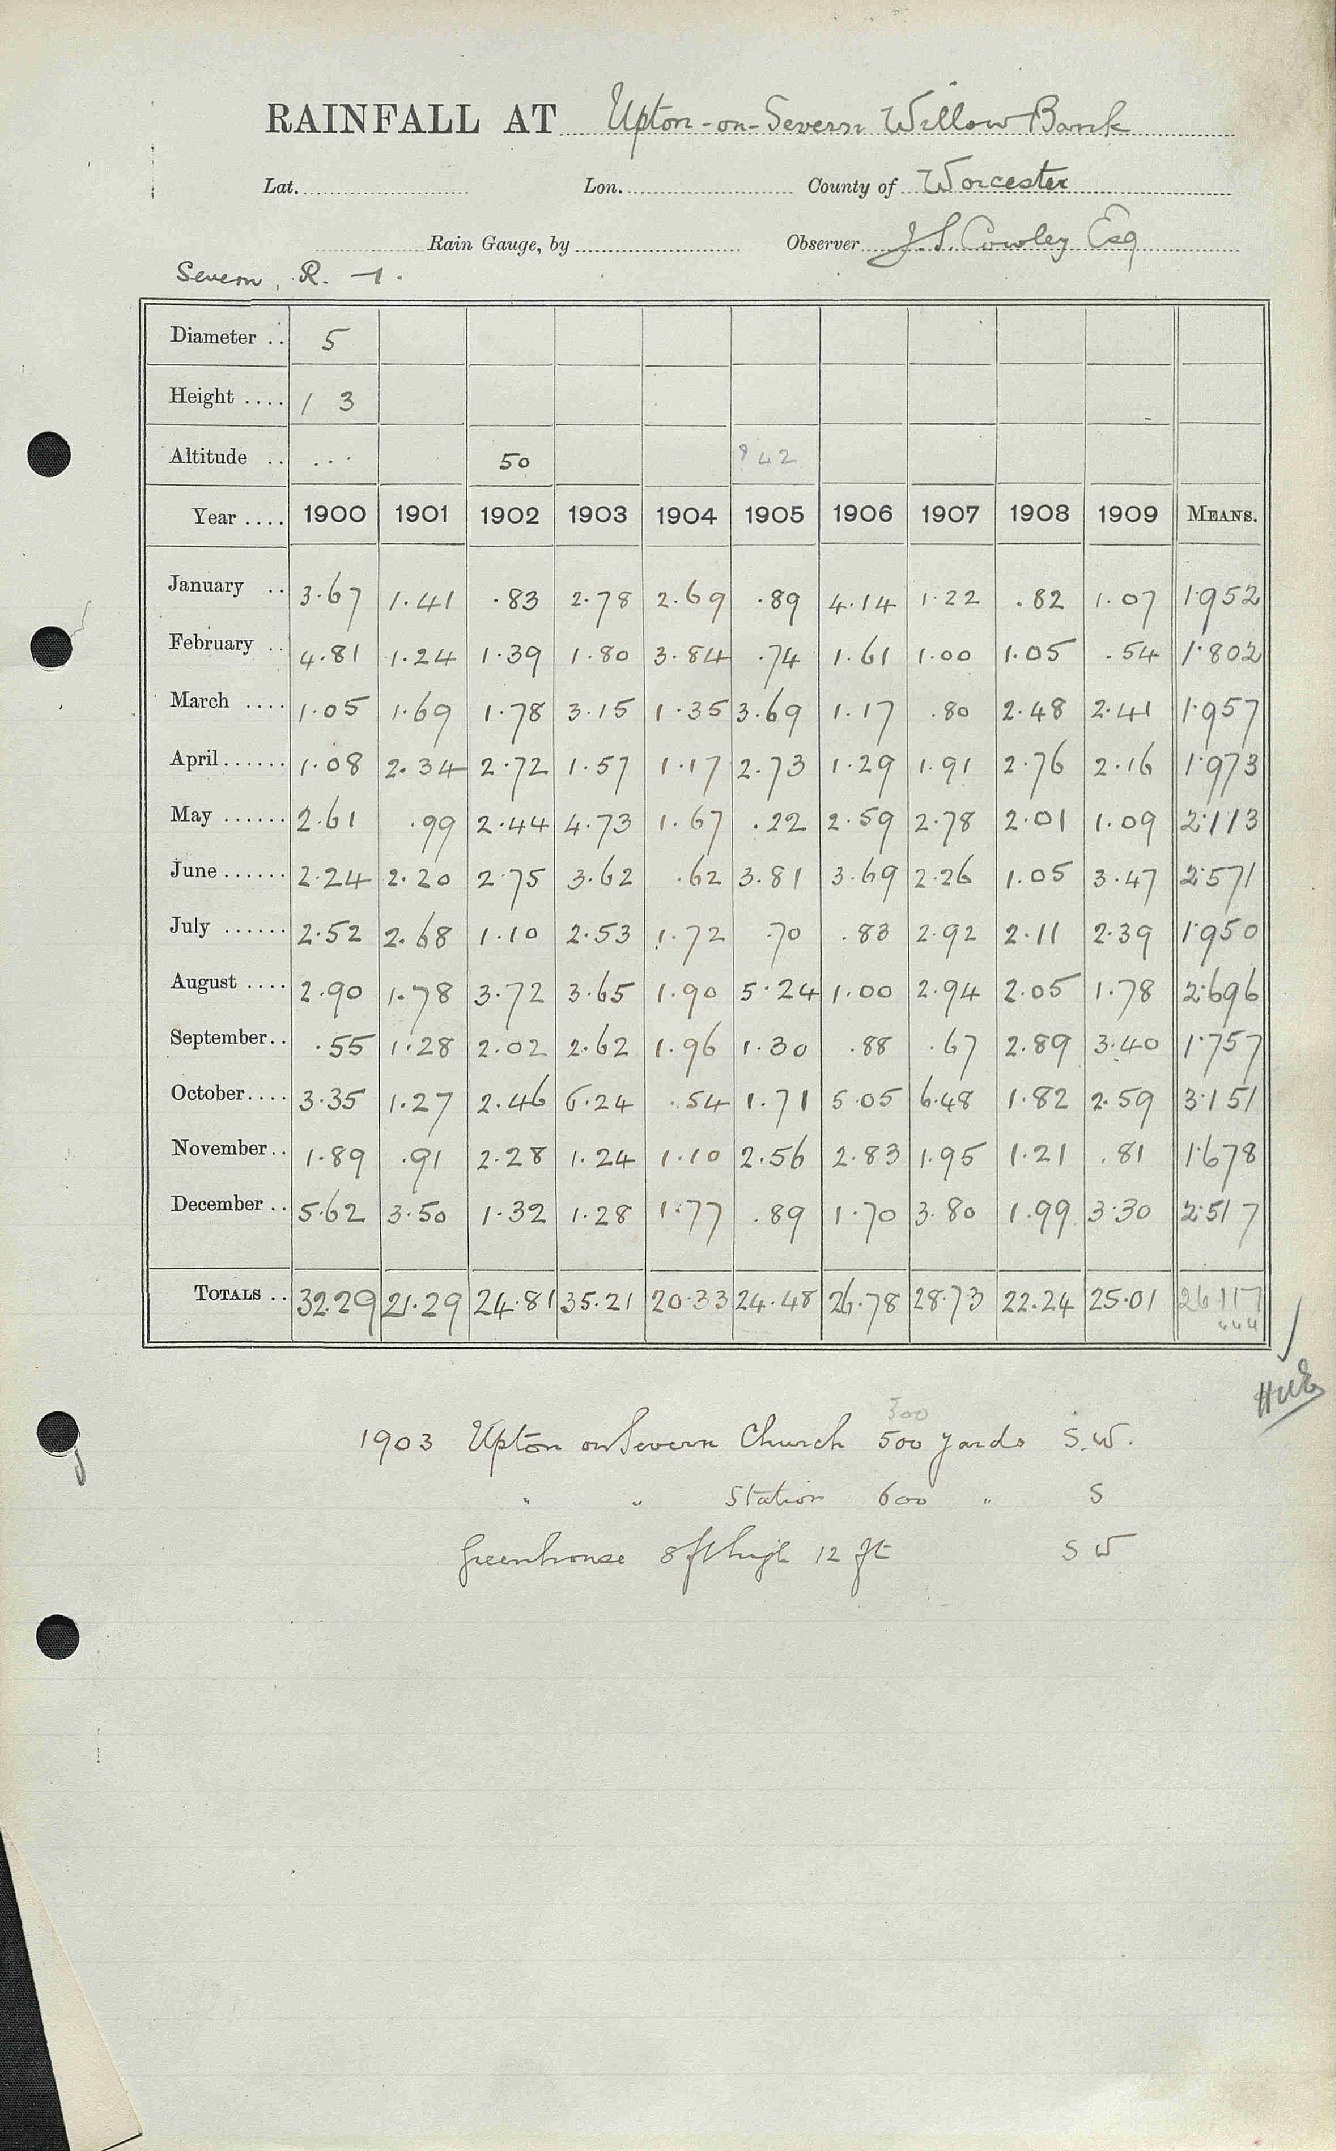 RAINFALL AT Upton-on-Severn Willow Bank
Lat. Lon. County of Worcester
Rain Gauge, by Observer J.S. Cowley Esq
Severn, R. -1.
Diameter .. 5
Height .... 1 3
Altitude .. ... 50 ? 42
Year .... 1900 1901 1902 1903 1904 1905 1906 1907 1908 1909 MEANS.
January .. 3.67 1.41 .83 2.78 2.69 .89 4.14 1.22 .82 1.07 1.952
February .. 4.81 1.24 1.39 1.80 3.84 .74 1.61 1.00 1.05 .54 1.802
March .... 1.05 1.69 1.78 3.15 1.35 3.69 1.17 .80 2.48 2.41 1.957
April...... 1.08 2.34 2.72 1.57 1.17 2.73 1.29 1.91 2.76 2.16 1.973
May ...... 2.61 .99 2.44 4.73 1.67 .22 2.59 2.78 2.01 1.09 2.113
June ...... 2.24 2.20 2.75 3.62 .62 3.81 3.69 2.26 1.05 3.47 2.571
July ...... 2.52 2.68 1.10 2.53 1.72 .70 .83 2.92 2.11 2.39 1.950
August .... 2.90 1.78 3.72 3.65 1.90 5.24 1.00 2.94 2.05 1.78 2.696
September.. .55 1.28 2.02 2.62 1.96 1.30 .88 .67 2.89 3.40 1.757
October.... 3.35 1.27 2.46 6.24 .54 1.71 5.05 6.48 1.82 2.59 3.151
November.. 1.89 .91 2.28 1.24 1.10 2.56 2.83 1.95 1.21 .81 1.678
December .. 5.62 3.50 1.32 1.28 1.77 .89 1.70 3.80 1.99 3.30 2.517
TOTALS .. 32.29 21.29 24.81 35.21 20.33 24.48 26.78 28.73 22.24 25.01 26.117
300
1903 Upton on Severn Church 500 yards S.W.
" " Station 600 " S
Greenhouse 8 ft high 12 ft S W